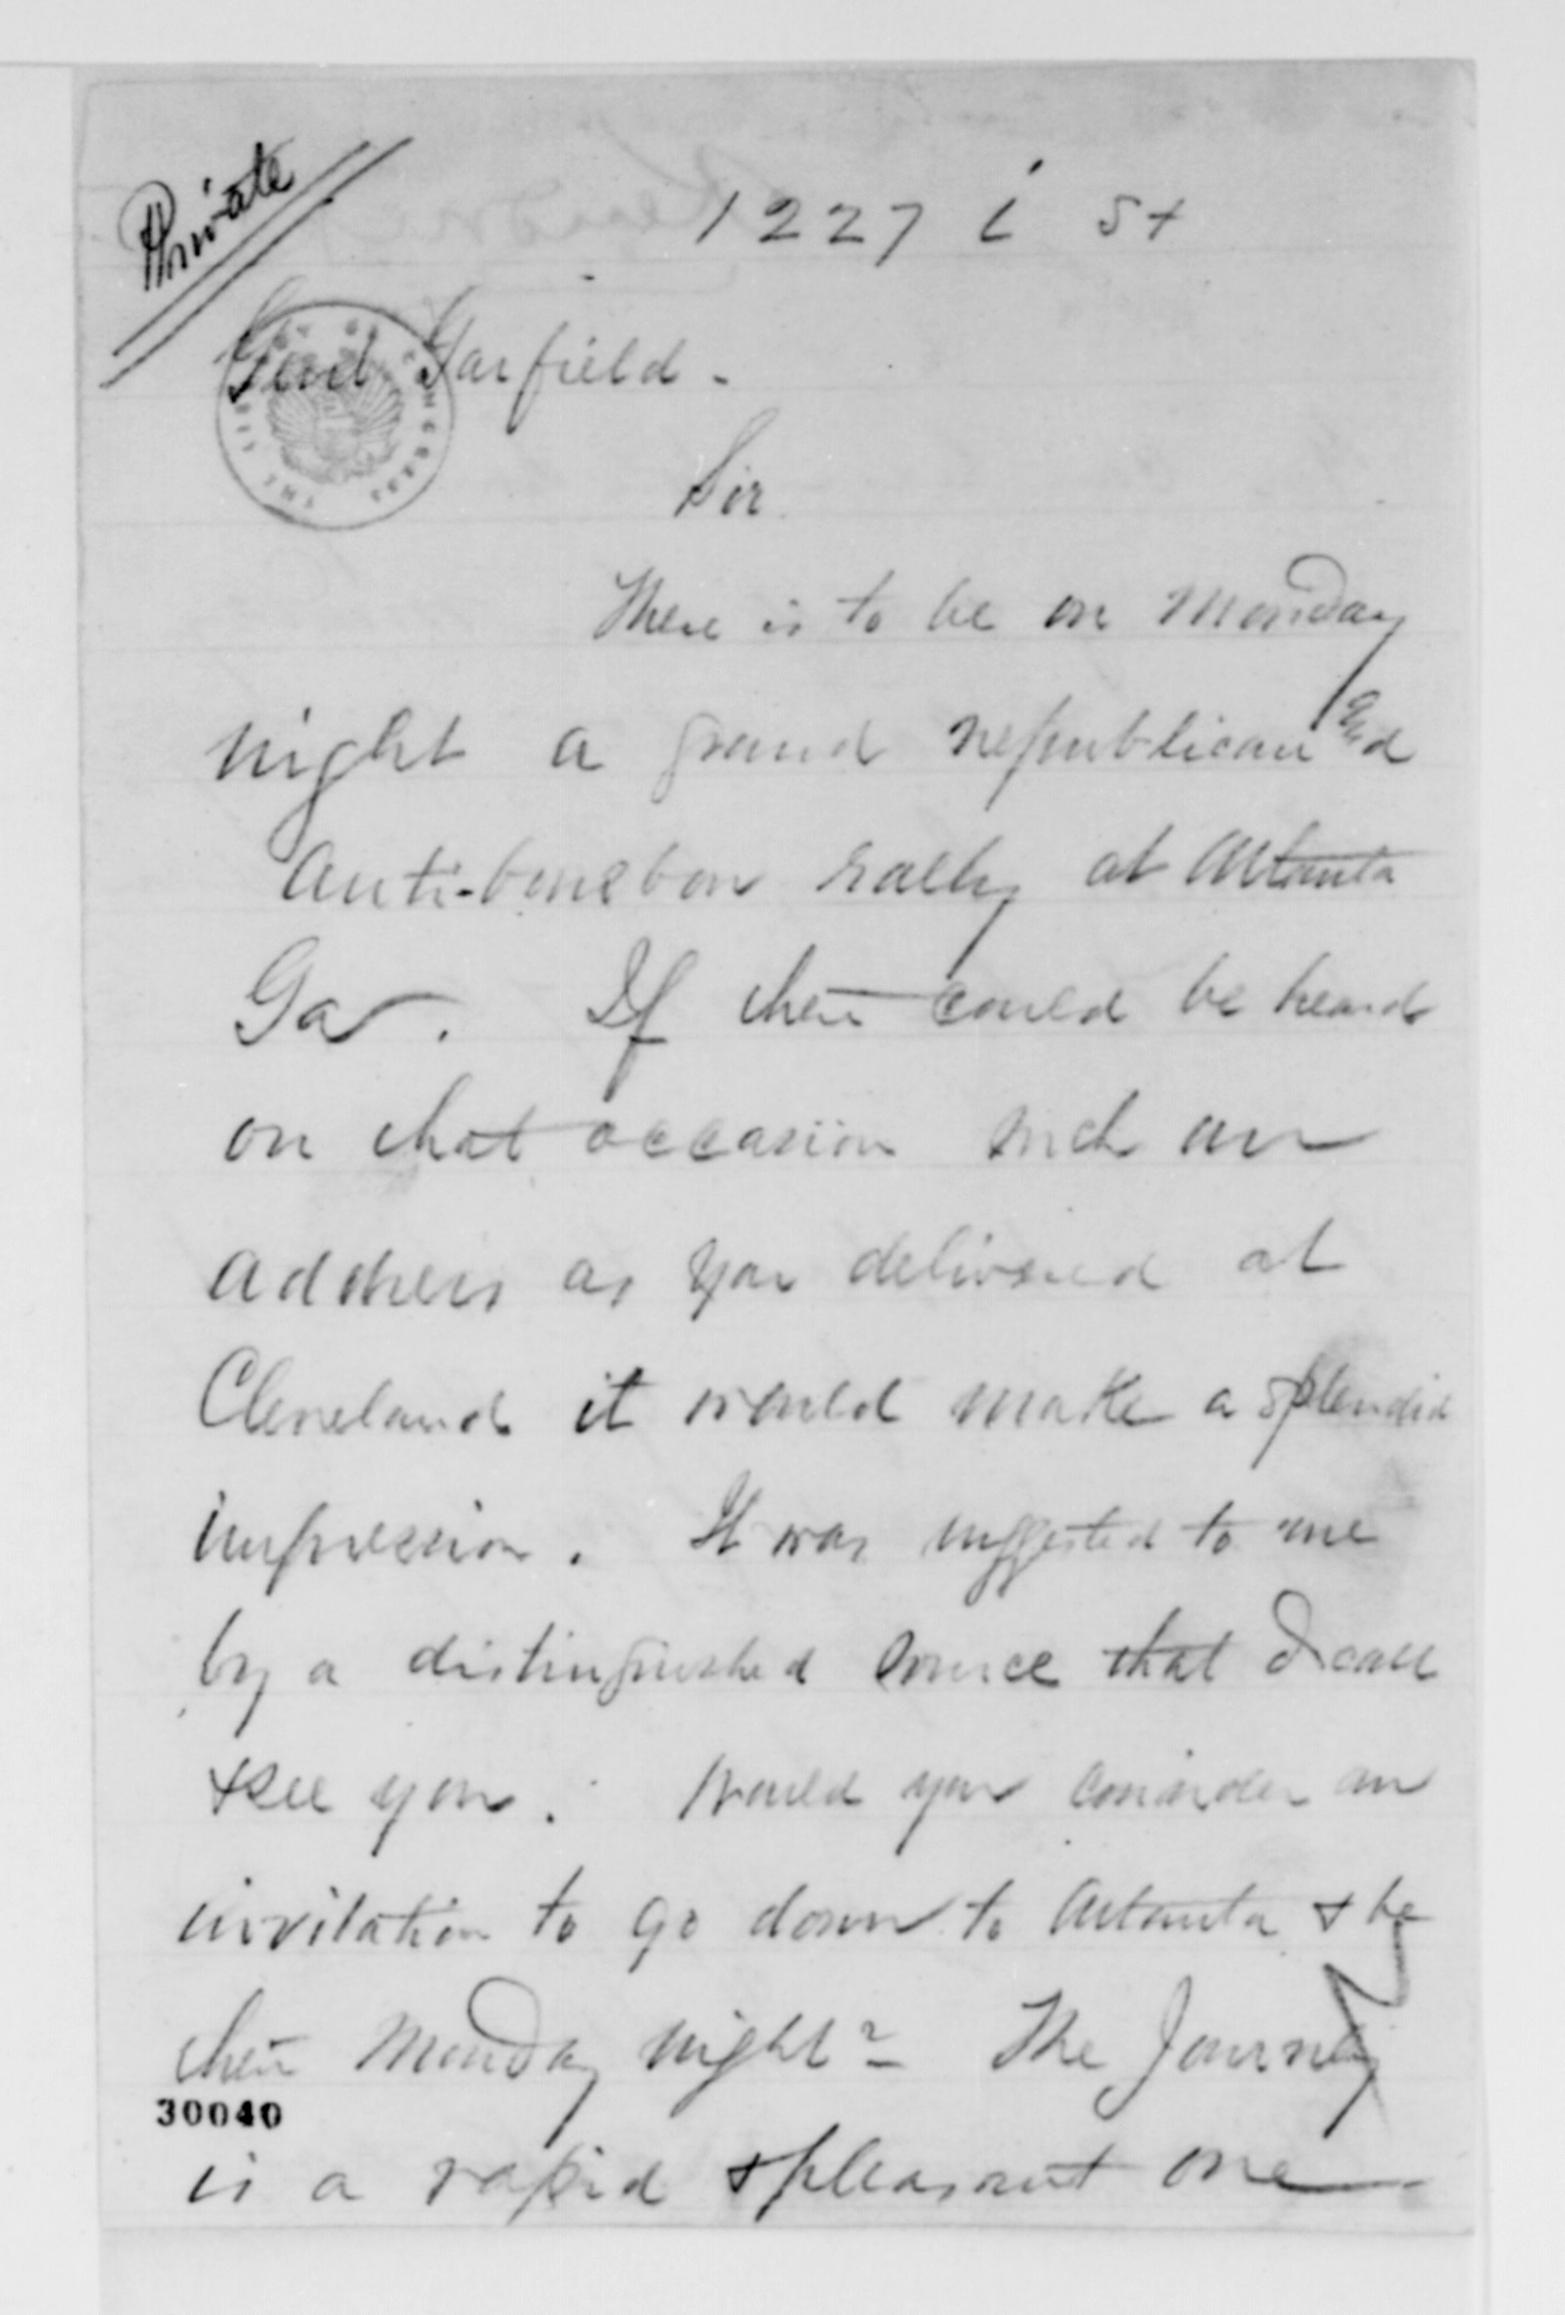 Private
1227 i St
Genl Garfield.
Sir
There is to be on Monday
night a grand republican and
Anti-bourbon rally at Atlanta
Ga. If there could be heard
on that occasion such an
address as you delivered at
Cleveland it would make a splendid
impression. It was suggested to me
by a distinguished source that I call
& see you. Would you consider an
invitation to go down to Atlanta & be
there Monday night? The Journey
30040
is a rapid & pleasant one